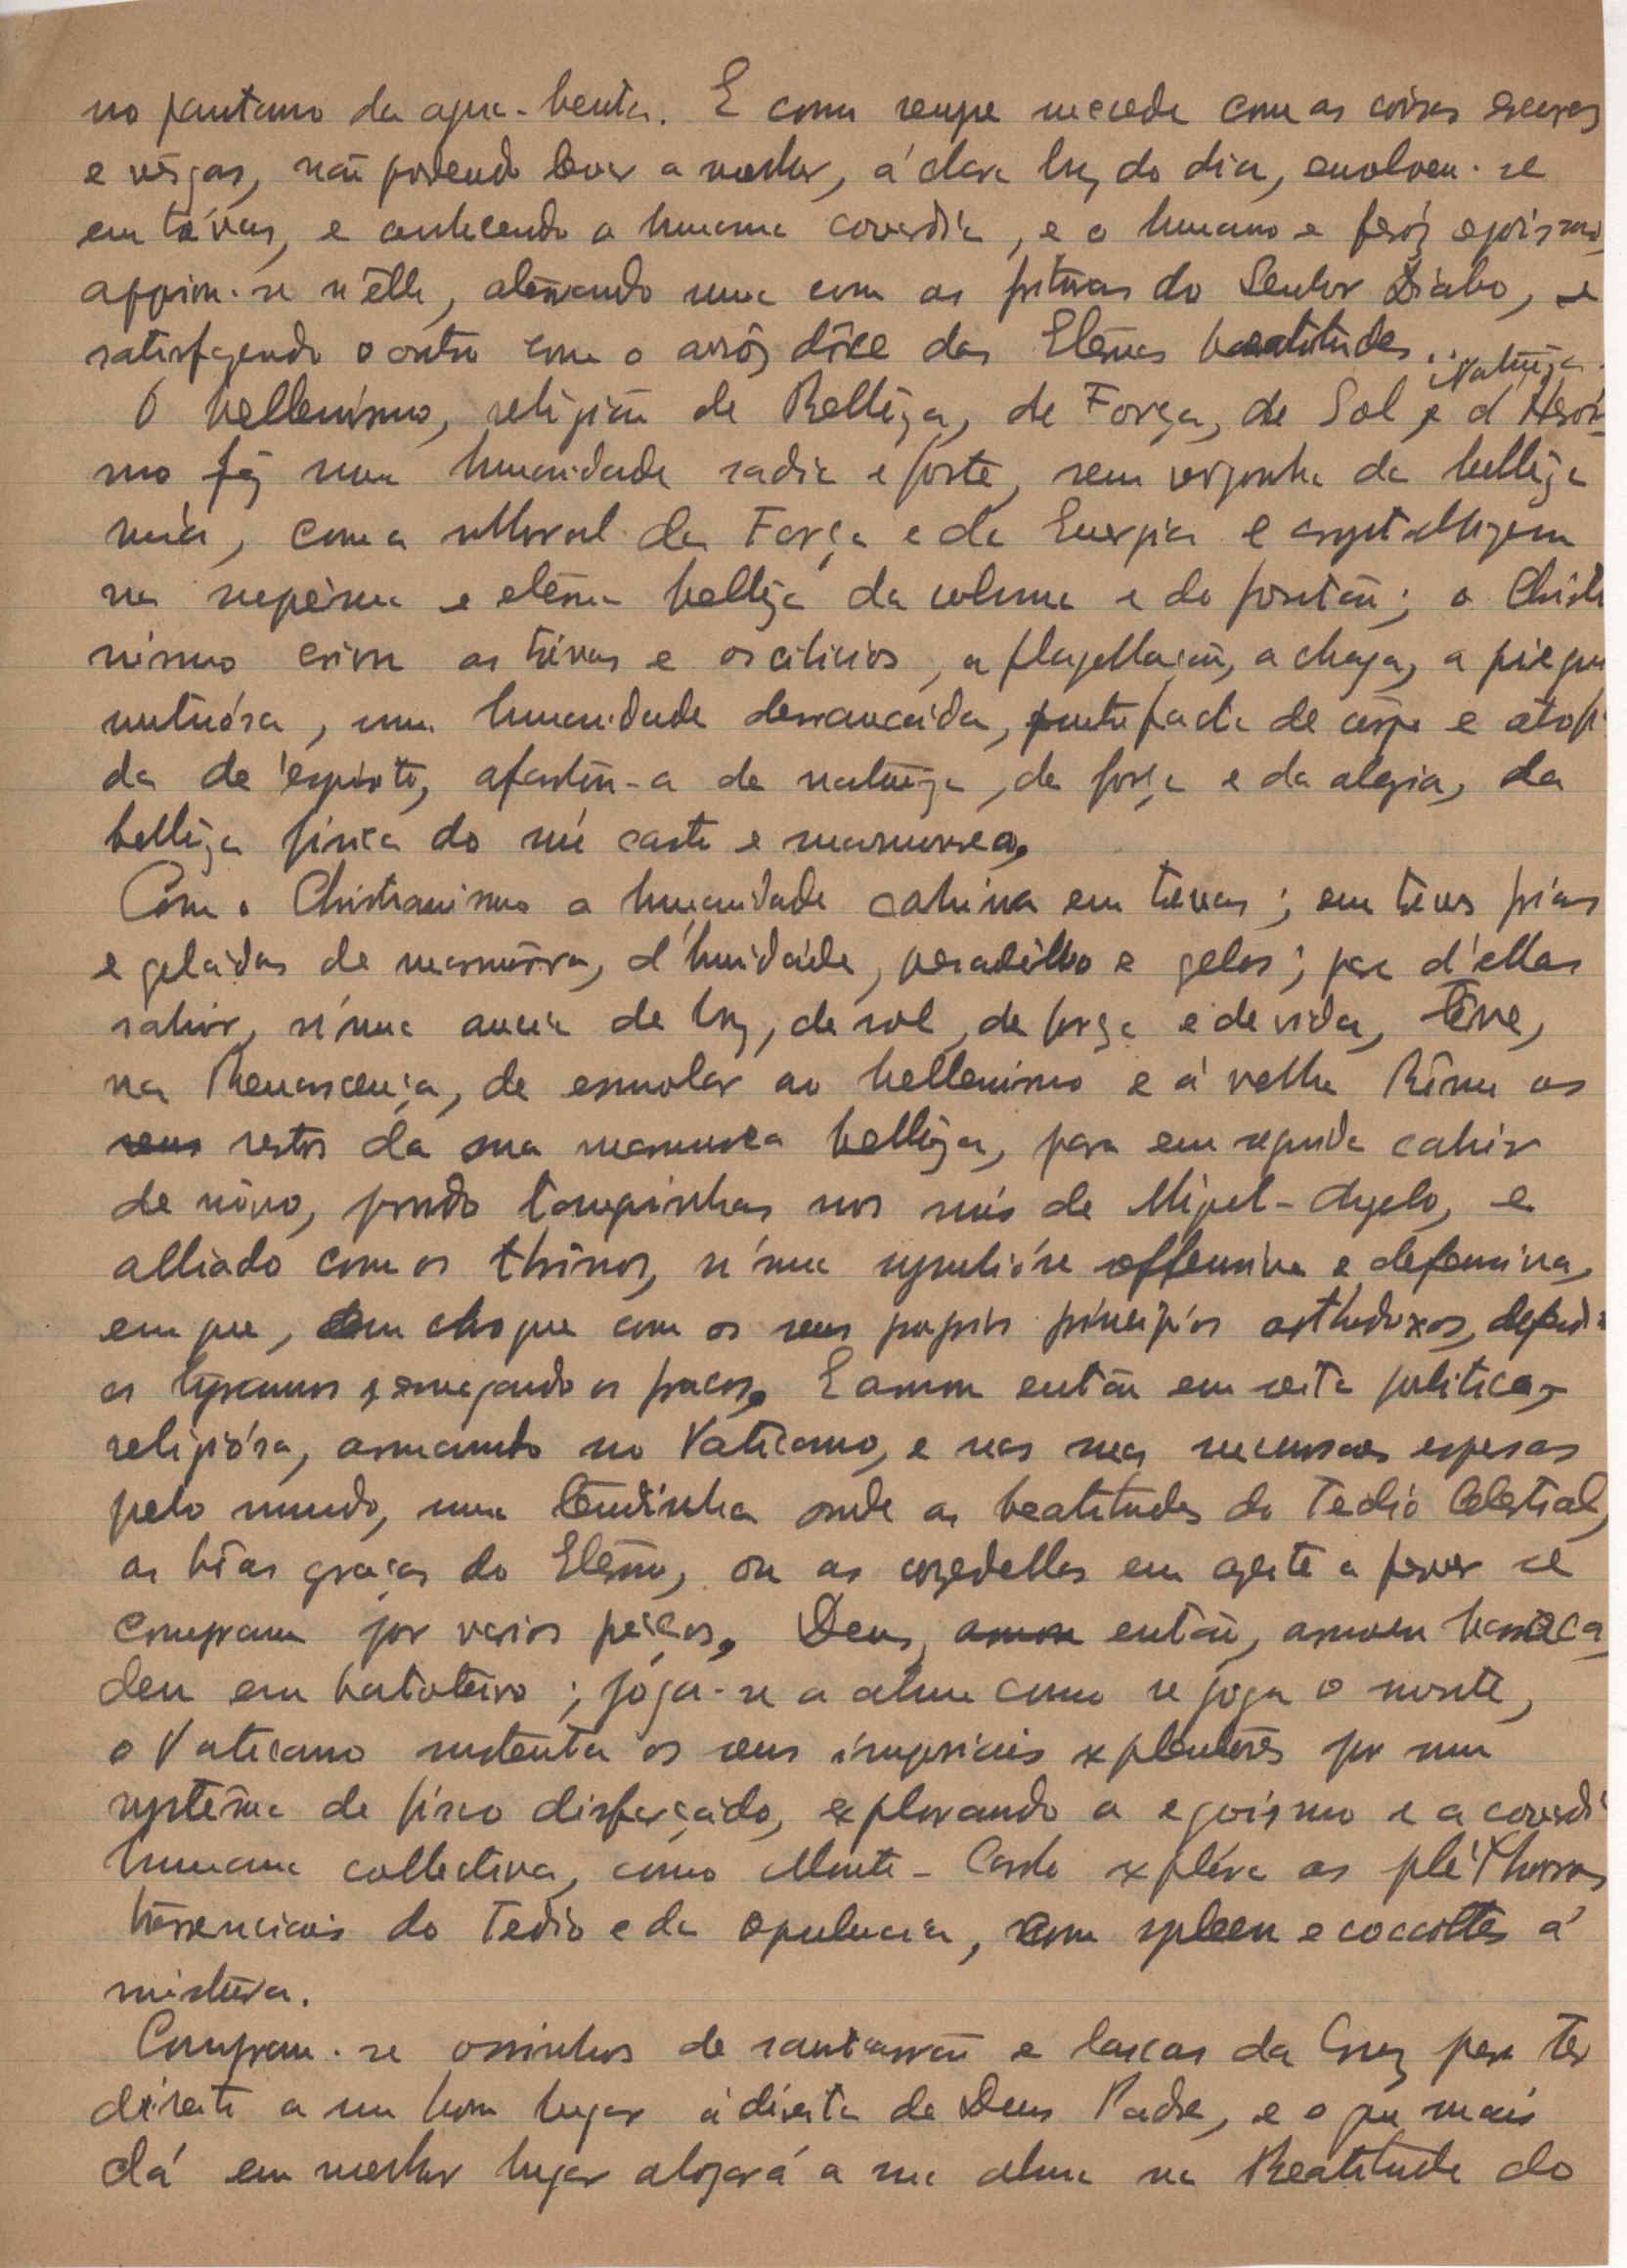 no pantano da agua-benta. E como sempre succede com as coisas escuras
e vêsgas, não podendo levar a melhor, á clara luz do dia, envolveu-se
em trévas, e conhecendo a humana covardia, e o humano e feróz egoismo,
appoiou-se n'élle, aterrando uma com as frituras do Senhor Diabo, e
satisfazendo o outro com o arrôz dôce das Etérnas beatitudes...
O hellenismo, religião de Bellêza, de Força, de Sol, Naturêza e d'Herois-
mo fêz uma humanidade sadia e forte, sem vergonha da bellêza
núa, com a Moral da Força e da Energia e crystallizou
na suprêma e etérna bellêza da columna e do frontão; o Christia
nismo criou as trévas e os cilicios, a flagellação, a chaga, a piegui
untuósa, uma humanidade derrancada, putrefacta de corpo e atrophi
da de espirito, afastou-a da naturêza, da força e da alegria, da
bellêza fisica do nú casto e marmoreo.
Com o Christianismo a humanidade cahira em trevas; em trévas frias
e geladas de masmôrra, d'humidade, pesadêllo e gelos; para d'ellas
sahir, n'uma ancia de luz, de sol, de força e de vida, têve,
na Renascença, de esmolar ao hellenismo e á velha Rôma os
seus restos da sua marmorea bellêza, para em seguida cahir
de nôvo, pondo tanguinhas nos nús de Miguel-Angelo, e
alliado com os thrônos, n'uma offensiva e defensiva,
em que, em choque com os seus proprios principios orthodoxos, defendia
os tyrannos esmagando os fracos. E arvorou então em seita politica-
religiósa, armando no Vaticano, e nas suas sucursaes espersas
pelo mundo, uma tendinha onde as beatitudes do Tedio Celestial,
as bôas graças do Etérno, ou as em azeite a ferver se
compram por varios preços. Deus, arvorou então, arvorou banca
deu em batoteiro; jóga-se a alma como se joga o monte,
o Vaticano sustenta os seus imperiais explendôres por um
systêma de fisco disfarçado, explorando o egoismo e a covardi
humana collectiva, como Monte-Carlo explóra as pléthoras
do Tedio e da opulencia, com spleen e coccottes á
mistura.
Compram-se ossinhos de santarrão e lascas da Cruz para ter
direito a um bom lugar á direita de Deus Padre, e o que mais
dá em melhor lugar alojará a sua alma na Beatitude do